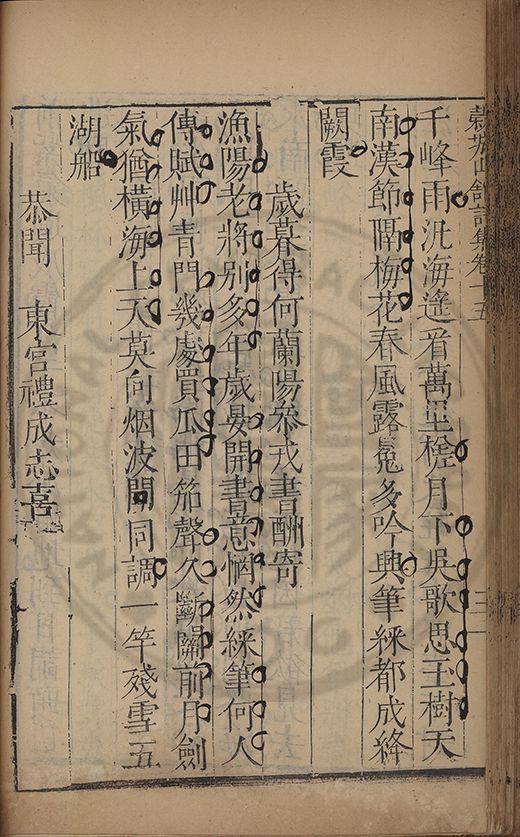 山館詩集卷十五
千峰雨汎海遙看萬里槎月下吳歌思玉樹天
南漢節隔梅花春風露冕多吟興筆綵都成絳
闕霞
歲暮得何蘭陽叅戎書酬寄
漁陽老將別多年歲晏開書意惘然綵筆何人
傳賦艸青門幾處買瓜田笳聲久斷關前月劍
氣猶橫海上天莫向烟波聞同調一竿殘雪五
湖船
恭聞 東宮禮成志喜